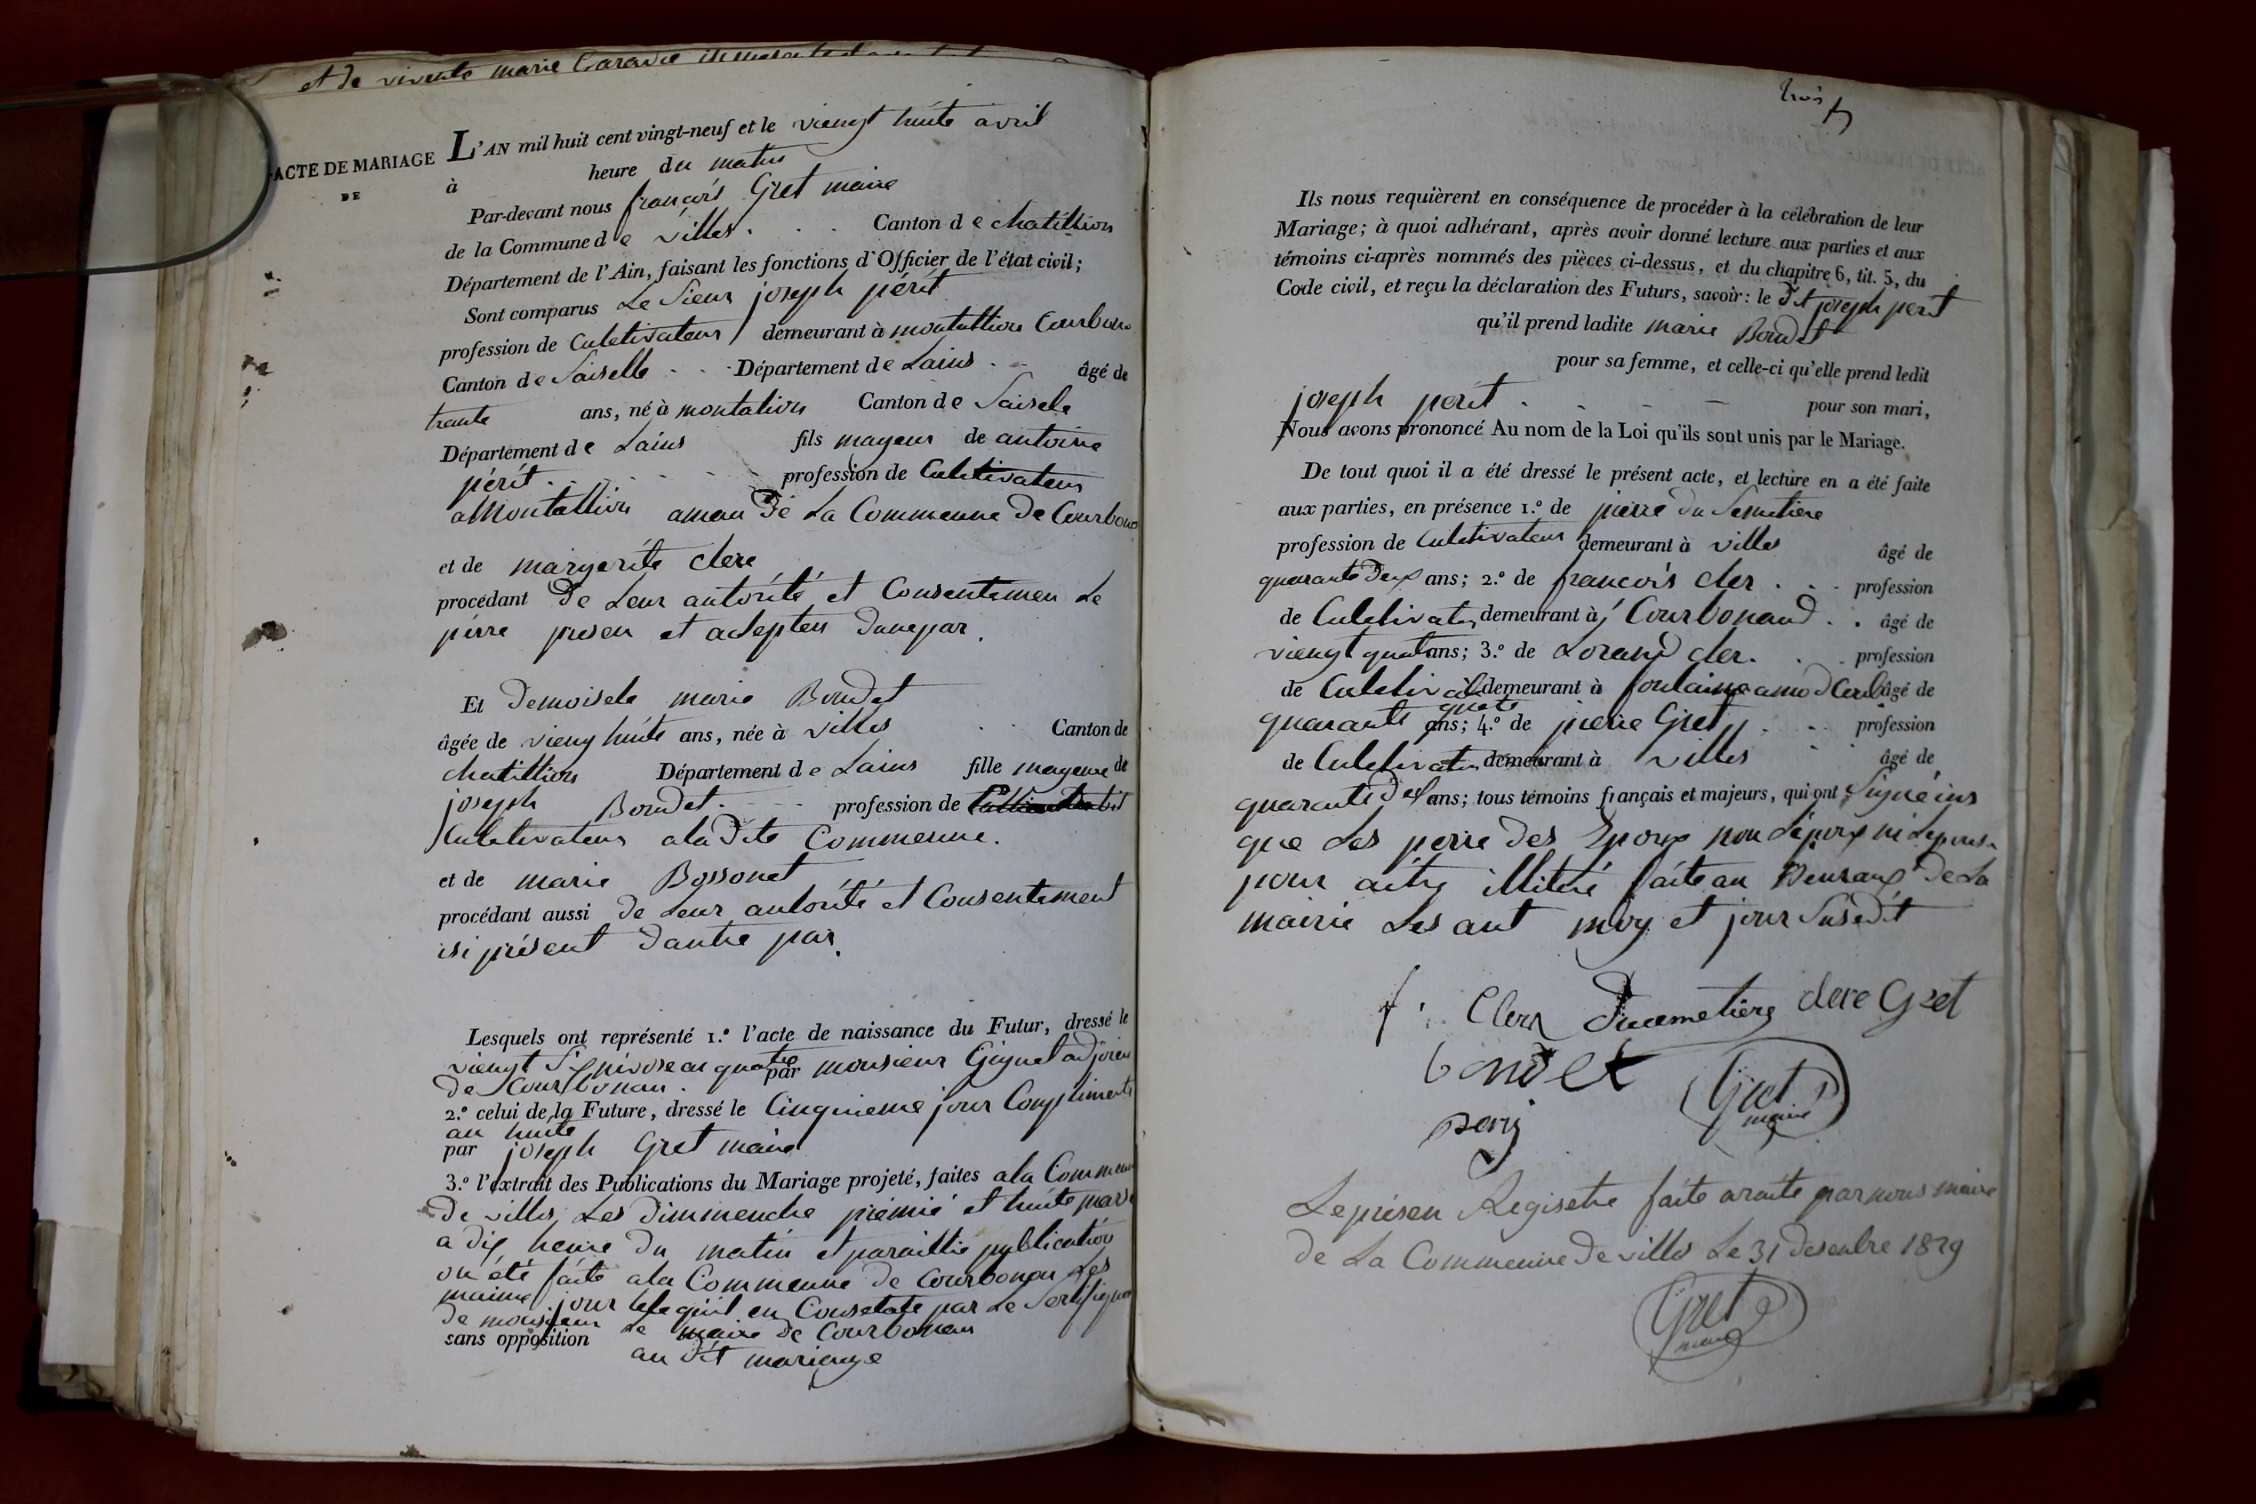 et de vivente marie
ACTE DE MARIAGE
DE
L'AN mil huit cent vingt-neuf et le viengt huite avril
à heure du matin
Par-devant nous françois Gret maire
de la Commune de villes. Canton de chatillion
Département de l'Ain, faisant les fonctions d'Officier de l'état civil;
Sont comparus Le Sieur joseph périt
profession de Culetivateur demeurant à montallion Courbono
Canton de Saiselle Département de Lains âgé de
trante ans, né à montalion Canton de Saisele
Département de Lains fils mayeur de antoine
périt profession de Culetivateur
a Montallion amau de La Commenne de Courbono
et de margerite clere
procédant de Leur autorité et Consentemen Le
perre presen et adepten dunepar.
Et demoisele marie Boudet
âgée de vieng huite ans, née à villes Canton de
chatillion Département de Lains fille mayeure de
joseph Boudet profession de
Culetivateur aladite Commenne.
et de marie Bossonet
procédant aussi de Leur autorité et Consentement
isi présent dautre par.
Lesquels ont représenté 1.º l'acte de naissance du Futur, dressé le
viengt six nivose an quatre par monsieur Gignet adjoien
de Courbonau.
2.º celui de la Future, dressé le Cinquieme jour Compliments
an huite
par joseph Gret maire
3.º l'extrait des Publications du Mariage projeté, faites ala Commenne
de villes, Les dimmenche premié et huite mars
a dix heure du matin et paraillie publication
on été faite ala Commenne de Courbonau Les
maime jour tele quil en Consetate par Le Sertifiquat
de monsieur Le maire de Courbonau
sans opposition au dit mariange
trois
Ils nous requièrent en conséquence de procéder à la célébration de leur
Mariage; à quoi adhérant, après avoir donné lecture aux parties et aux
témoins ci-après nommés des pièces ci-dessus, et du chapitre 6, tit. 5, du
Code civil, et reçu la déclaration des Futurs, savoir: le dit joseph perit
qu'il prend ladite marie Boudet
pour sa femme, et celle-ci qu'elle prend ledit
joseph perit pour son mari,
Nous avons prononcé Au nom de la Loi qu'ils sont unis par le Mariage.
De tout quoi il a été dressé le présent acte, et lecture en a été faite
aux parties, en présence 1.º de pierre du Semetiere
profession de Culetivateur demeurant à villes âgé de
quarante deux ans; 2.º de francois cler profession
de Culetivater demeurant à Courbonaud âgé de
viengt quatans; 3.º de Lorand cler. profession
de Culetivat demeurant à foulaine amo d Courb âgé de
quarante quate ans; 4.º de pierre Gret profession
de Culetivater demeurant à villes âgé de
quarante dex ans; tous témoins français et majeurs, qui ont Signé ins
que Les perre des Epoux non Lepoux ni Lepouse
pour aitre illitéré faite au Beuraux de La
mairie Les ant moy et jour Susedit
f. Clerc Ducemetiere clere Gret
bondet
Gret
maire
periy
Le présen Registre faite araite par nous maire
de La Commenne de villes Le 31 desenbre 1829
Gret
maire